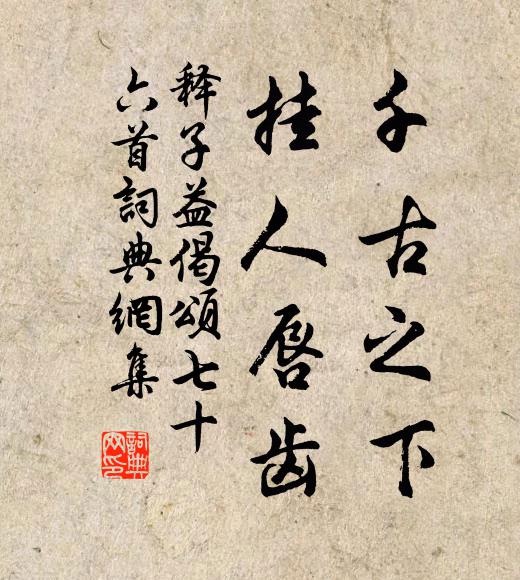 千古之下
挂人唇齿
释子益偈颂七十
六首詞典網集
詞典
网印